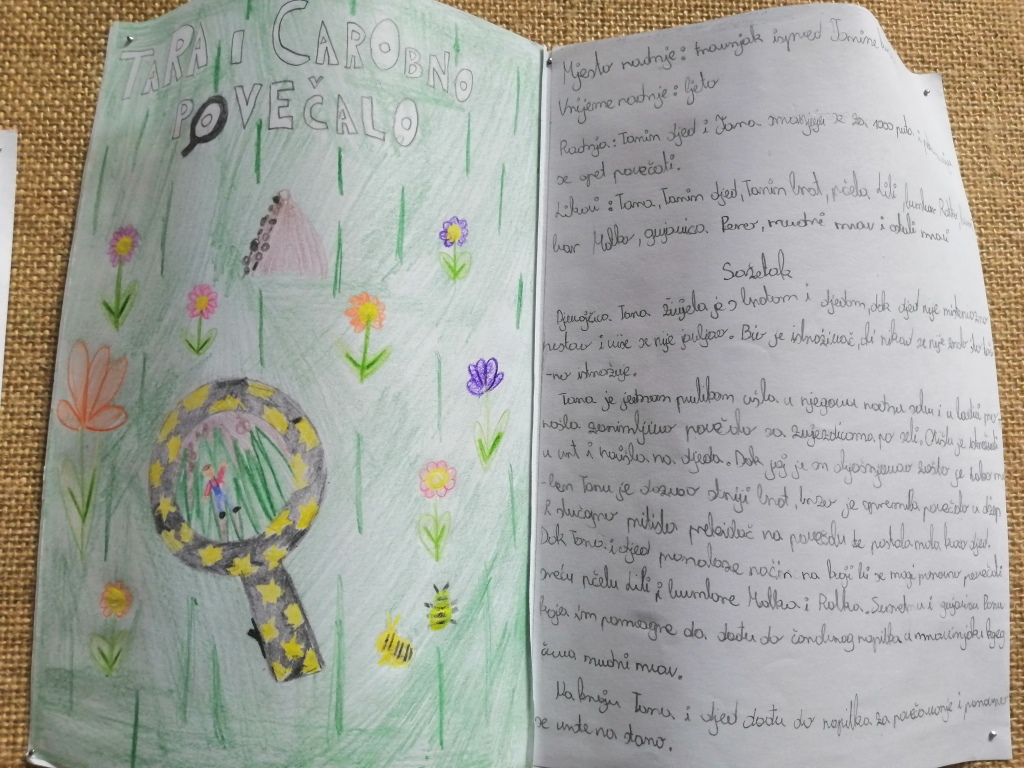 TARA I ČAROBNO
POVEČALO
Mjesto radnje: travnjak ispred Tarine
Vrijeme radnje: ljeto
Radnja: Tarin djed i Tara smanjuju se za 1000 puta i
se opet povečati.
Likovi: Tara, Tarin djed, Tarin brat, pčela Lili, bumbar Rolko,
bar Molko, gujavica Pero, mudri mrav i ostali mravi
Sažetak
Djevojčica Tara živjela je s bratom i djedom, dok djed nije misteriozno
nestao i više se nije javljao. Bio je istraživač, ali nikad se nije znalo što
-no istražuje.
Tara je jednom prilikom ušla u njegovu radnu sobu i u ladici pro-
našla zanimljivo povečalo sa zvjezdicama po sebi. Otišla je istraživati
u vrt i naišla na djeda. Dok joj je on objašnjavao zašto je toliko ma
-len Taru je dozvao stariji brat, brzo je spremila povečalo u džep
i slučajno pritisla prekidač na povečalu te postala mala kao djed.
Dok Tara i djed pronalaze način na koji bi se mogli ponovno povečati
sreću pčelu Lili i bumbare Molka i Rolka. Susretnu i gujavicu Peru
koja im pomogne da dođu do čarobnog napitka u mravinjaku kojeg
čuva mudri mrav.
Na kraju Tara i djed dođu do napitka za povečavanje i ponovno
se vrate na staro.